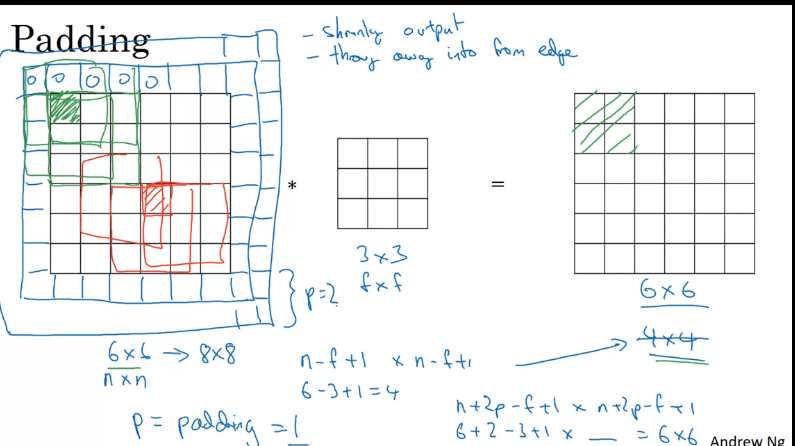 Padding
- shrinks output
- throw away info from edge
0 0 0 0 0
*
=
3 × 3
f × f
p = 2
6 × 6
4 × 4
6 × 6 → 8 × 8
n × n
n - f + 1 × n - f + 1
6 - 3 + 1 = 4
p = padding = 1
n + 2p - f + 1 × n + 2p - f + 1
6 + 2 - 3 + 1 × __ = 6 × 6
Andrew Ng